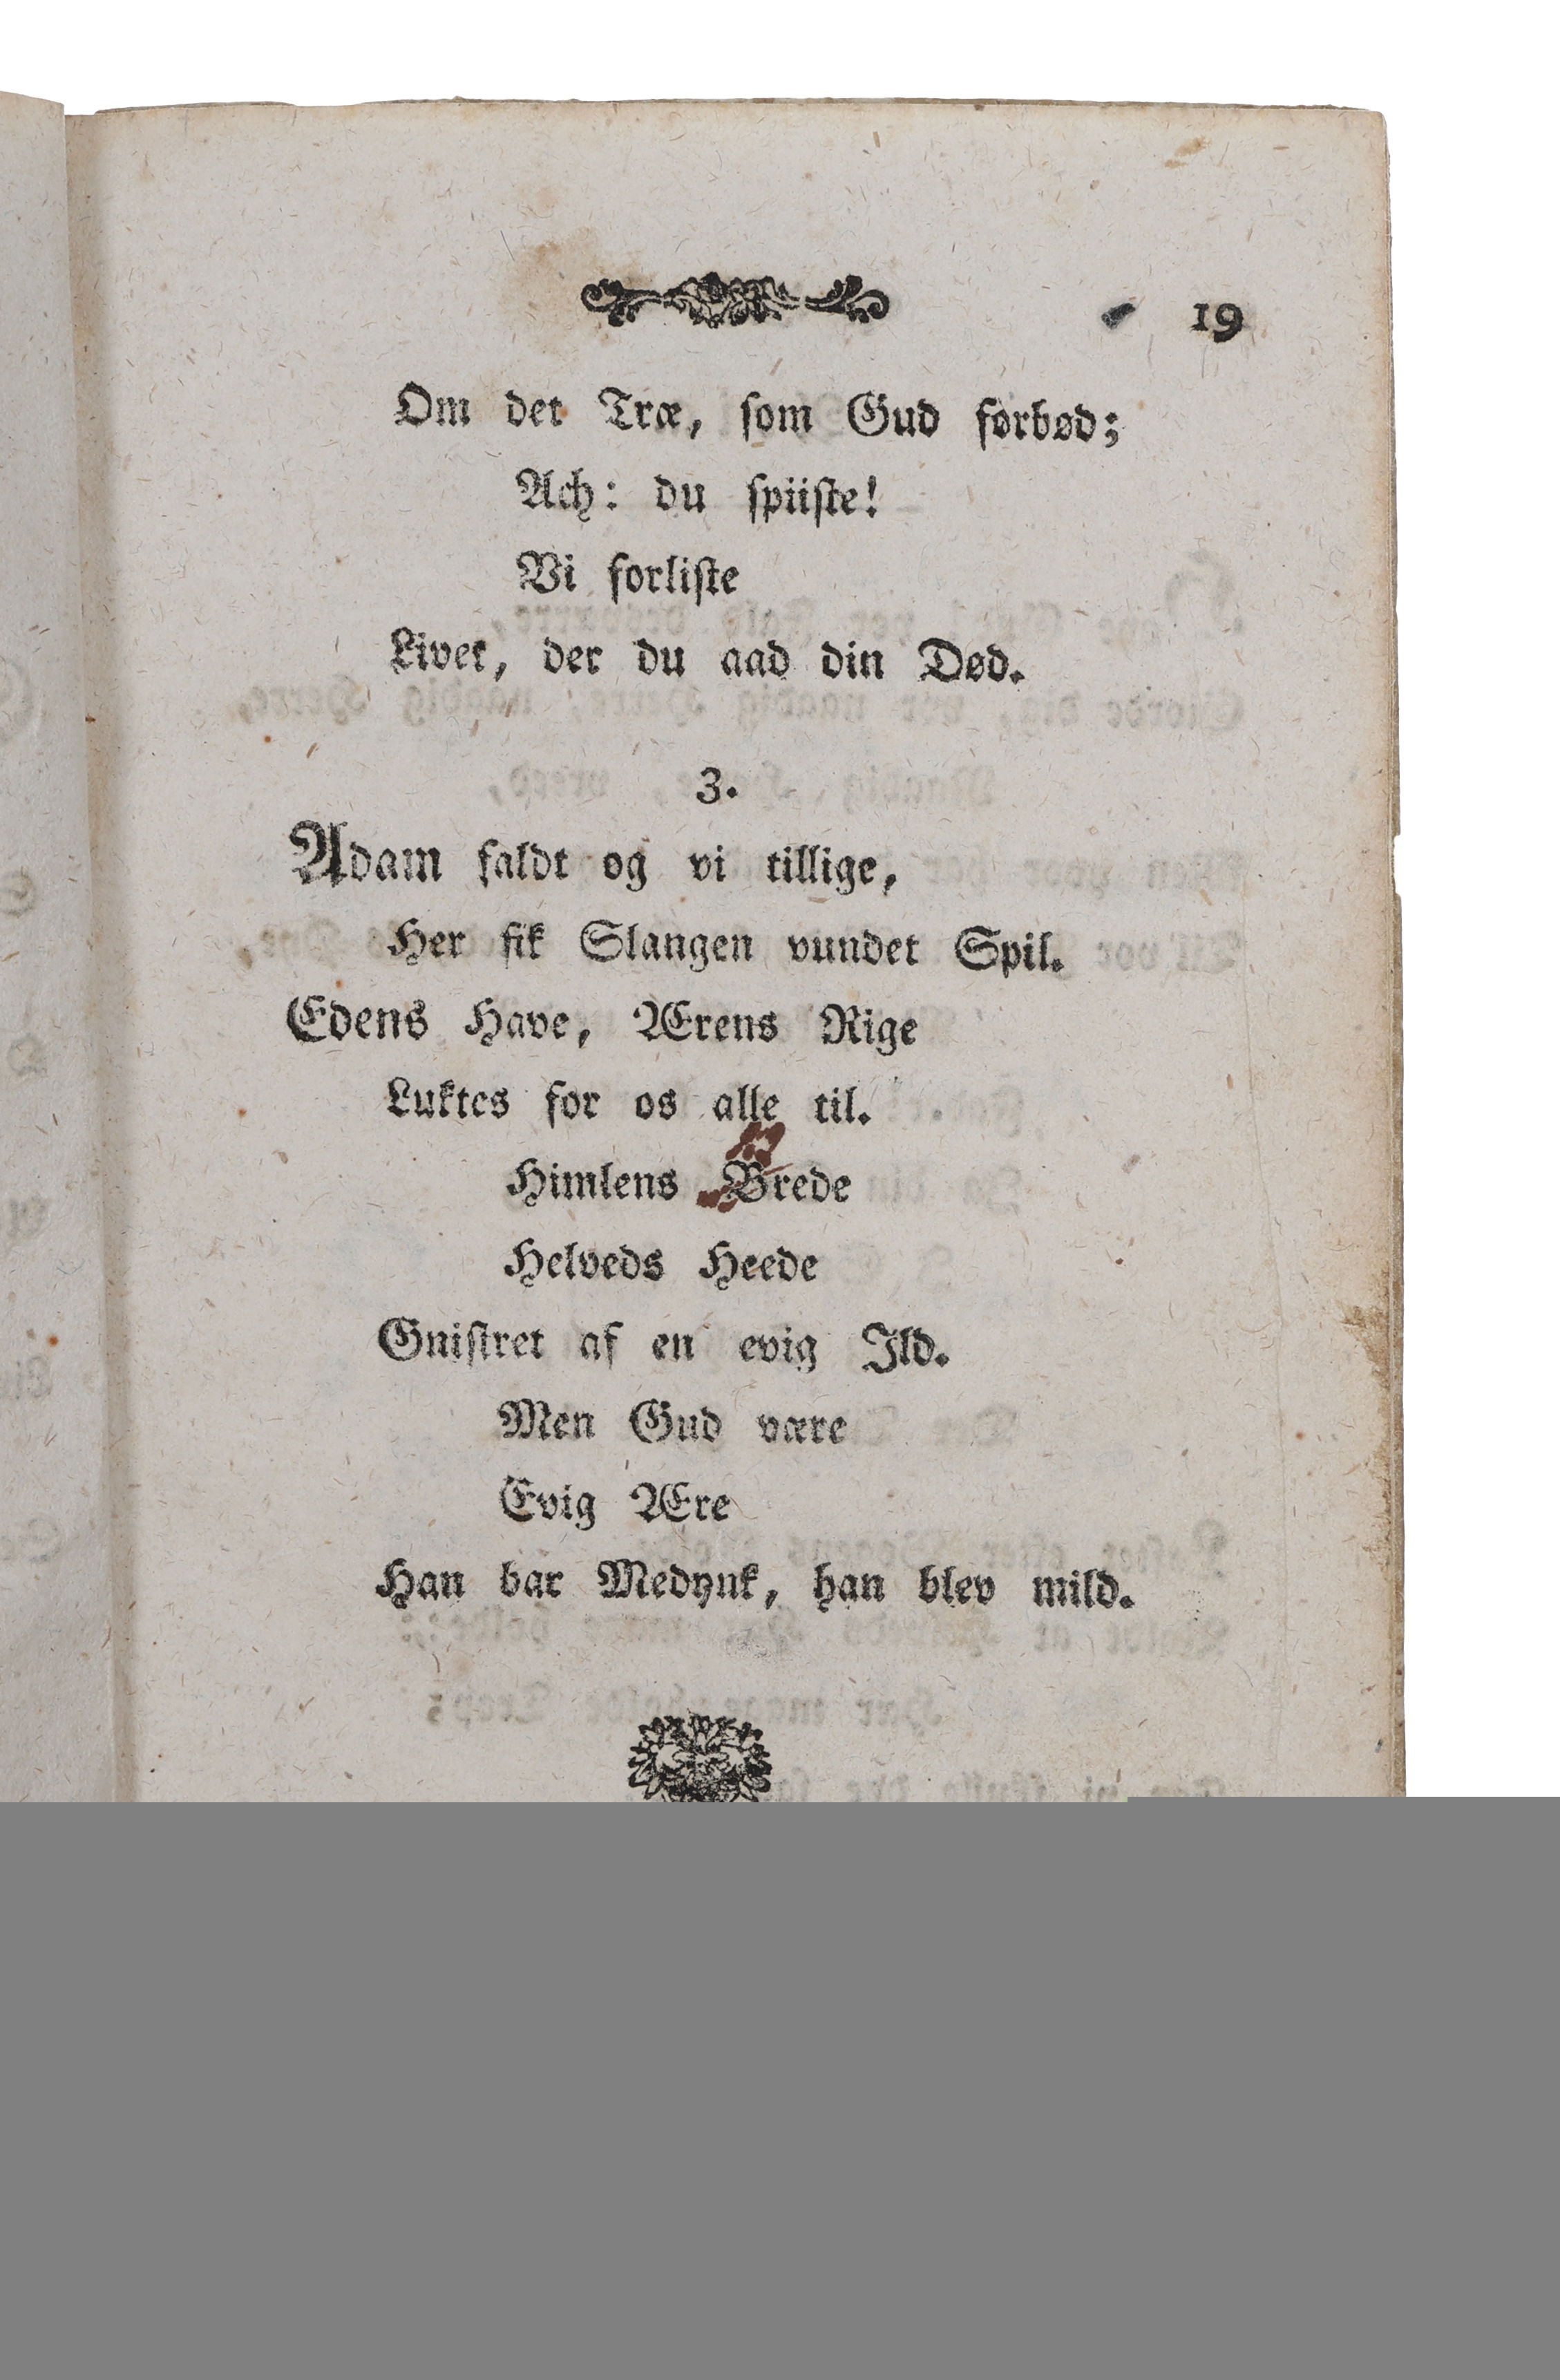 19
Om det Træ, som Gud forbød;
Ach: du spiiste!
Vi forliste
Livet, der du aad din Død.
3.
Adam faldt og vi tillige,
Her fik Slangen vundet Spil.
Edens Have, Ærens Rige
Luktes for os alle til.
Himlens Vrede
Helveds Heede
Gnistret af en evig Ild.
Men Gud være
Evig Ære
Han bar Medynk, han blev mild.